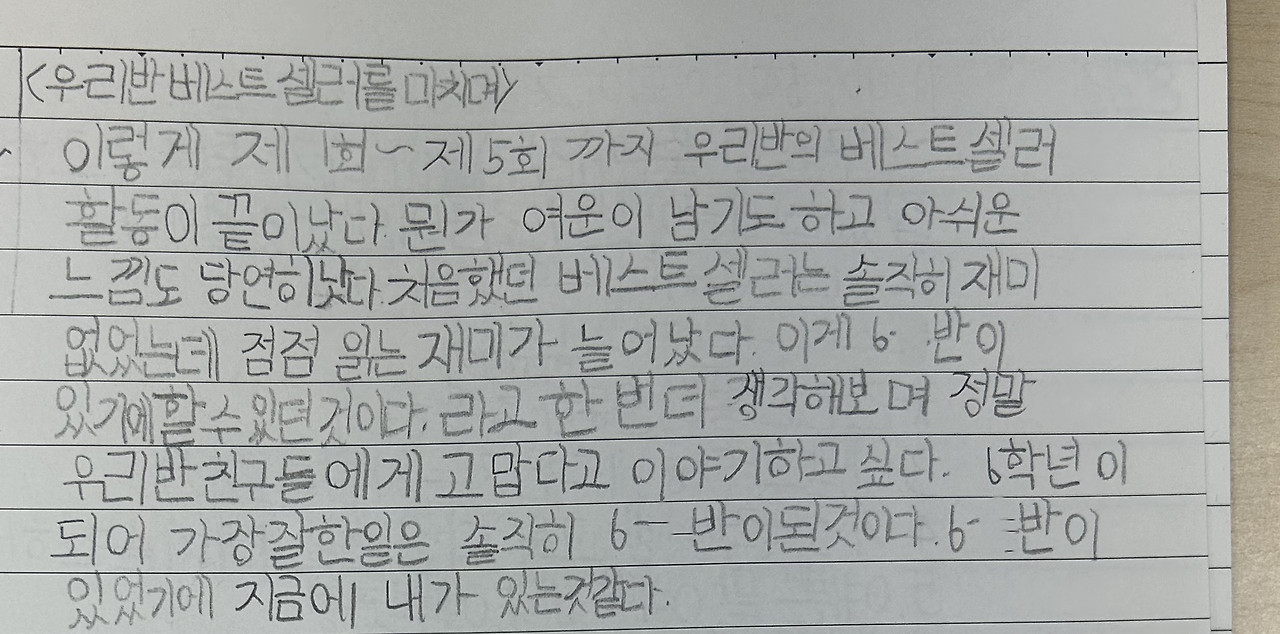 <우리반 베스트 셀러를 마치며>
이렇게 제 1회~제 5회 까지 우리반의 베스트셀러
활동이 끝이났다. 뭔가 여운이 남기도 하고 아쉬운
느낌도 당연히났다. 처음했던 베스트 셀러는 솔직히 재미
없었는데 점점 읽는 재미가 늘어났다. 이게 6- 반이
있기에할 수 있던 것이다. 라고 한 번 더 생각해보며 정말
우리반 친구들에게 고맙다고 이야기하고 싶다. 6학년이
되어 가장잘한일은 솔직히 6- 반이된것이다. 6- 반이
있었기에 지금에 내가 있는것같다.